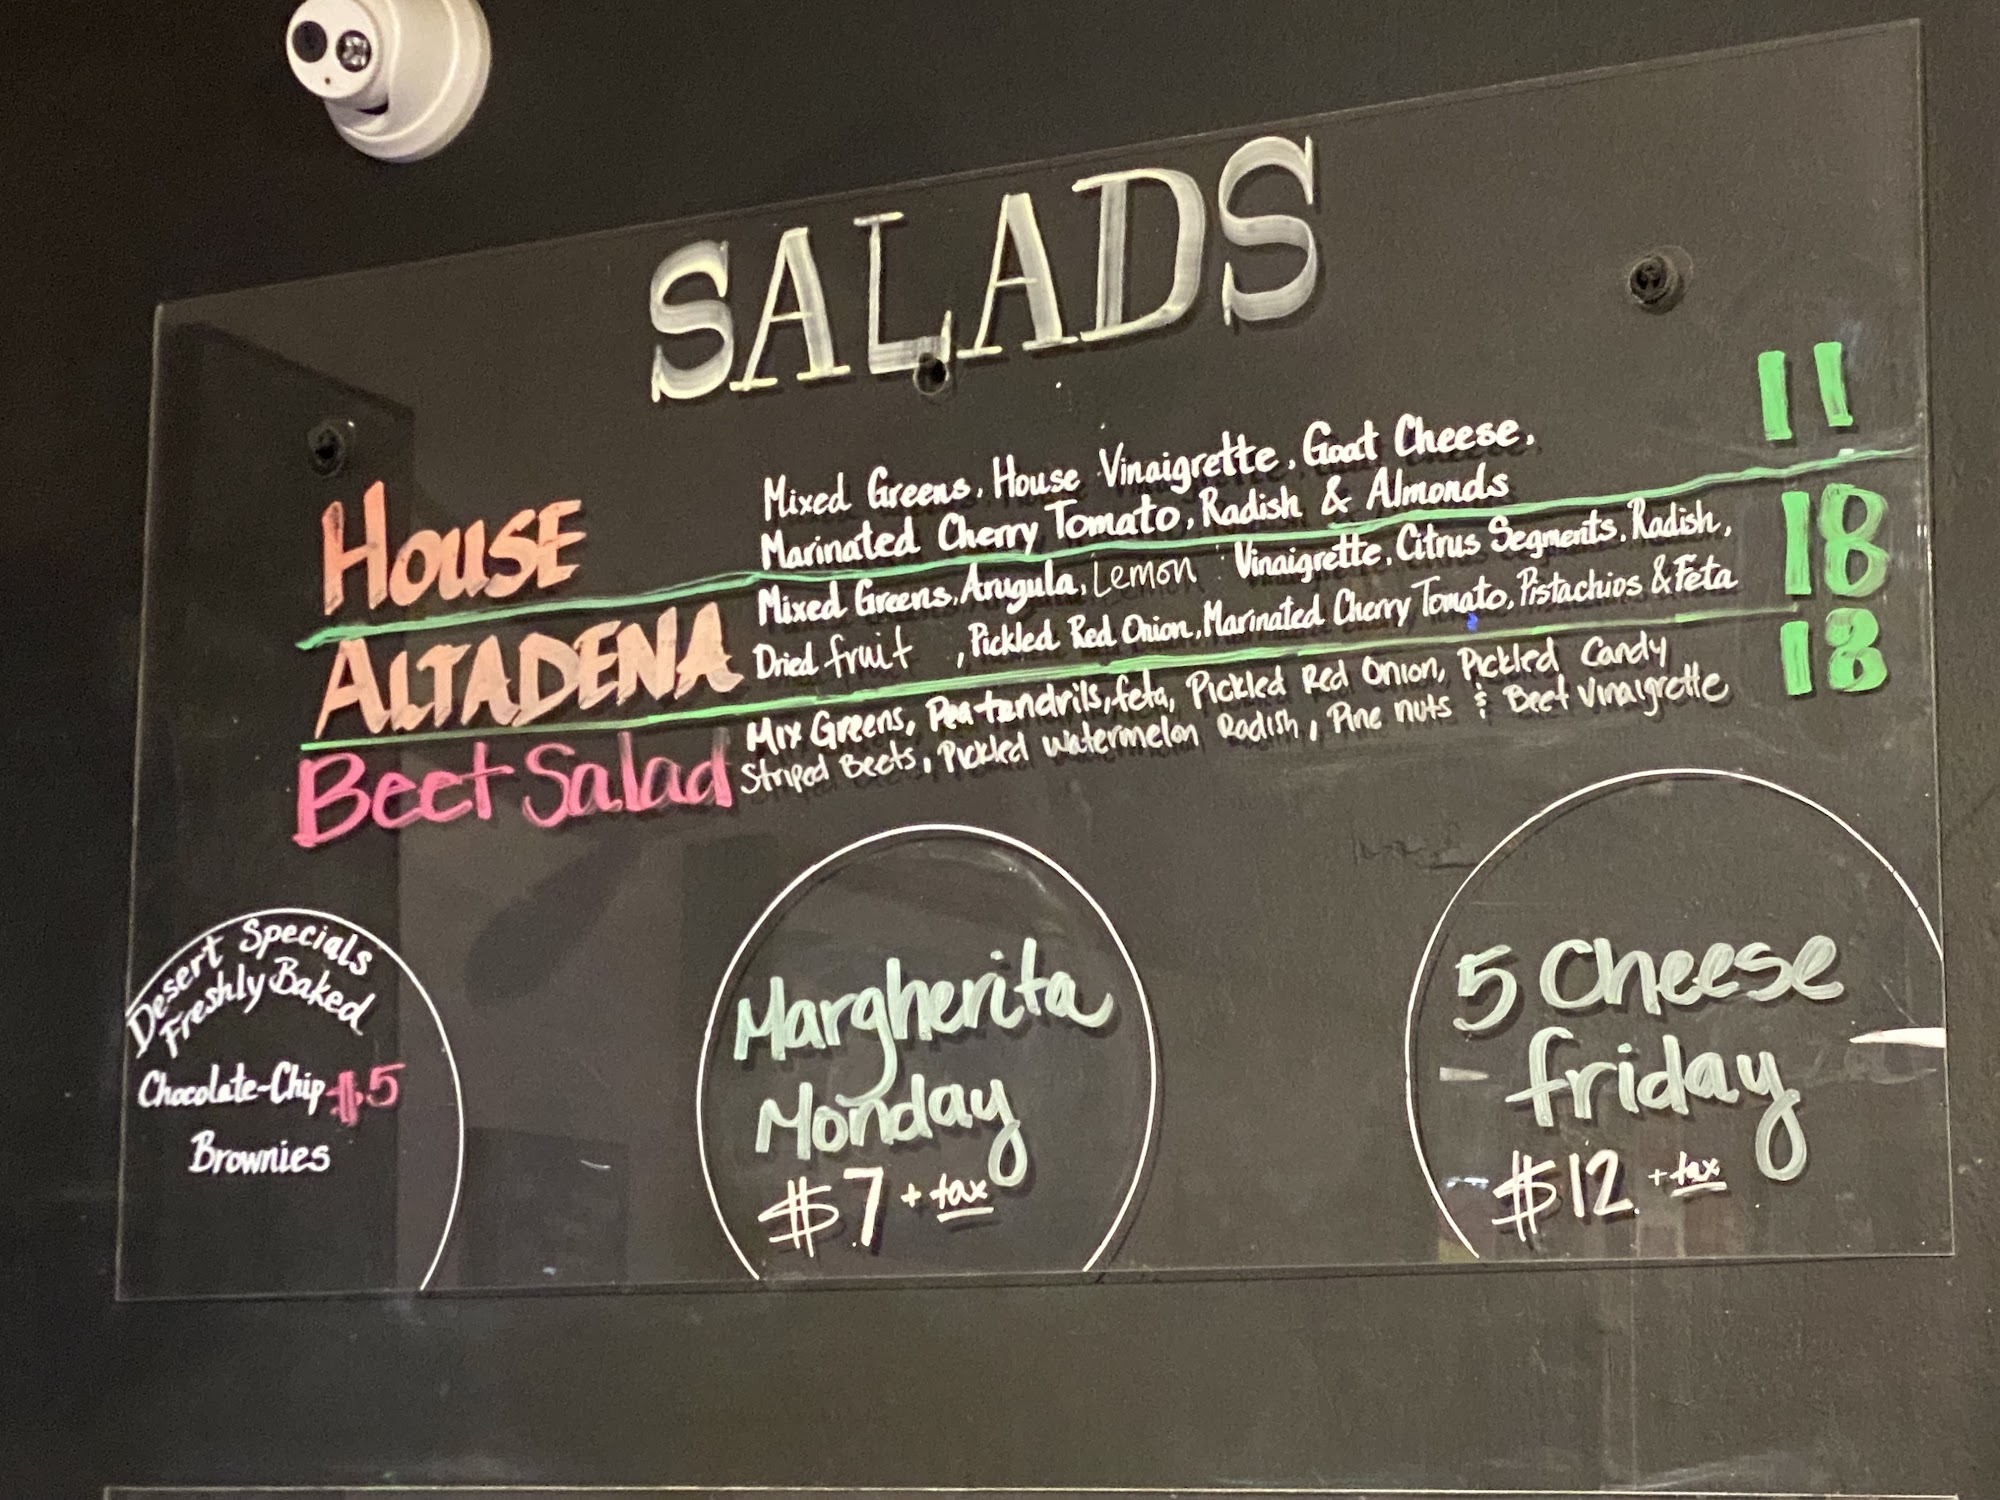 SALADS
HOUSE
Mixed Greens, House Vinaigrette, Goat Cheese,
Marinated Cherry Tomato, Radish & Almonds
11
ALTADENA
Mixed Greens, Arugula, Lemon Vinaigrette, Citrus Segments, Radish,
Dried fruit , Pickled Red Onion, Marinated Cherry Tomato, Pistachios & Feta
18
Beet Salad
Mix Greens, Pea tendrils, feta, Pickled Red Onion, Pickled Candy
Striped Beets, Pickled Watermelon Radish, Pine nuts & Beet Vinaigrette
18
Desert Specials
Freshly Baked
Chocolate-Chip $5
Brownies
Margherita
Monday
$7 + tax
5 Cheese
friday
$12 + tax